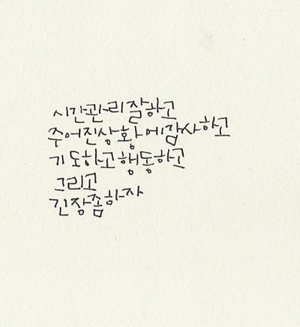 시간관리잘하고
주어진상황에감사하고
기도하고행동하고
그리고
긴장좀하자